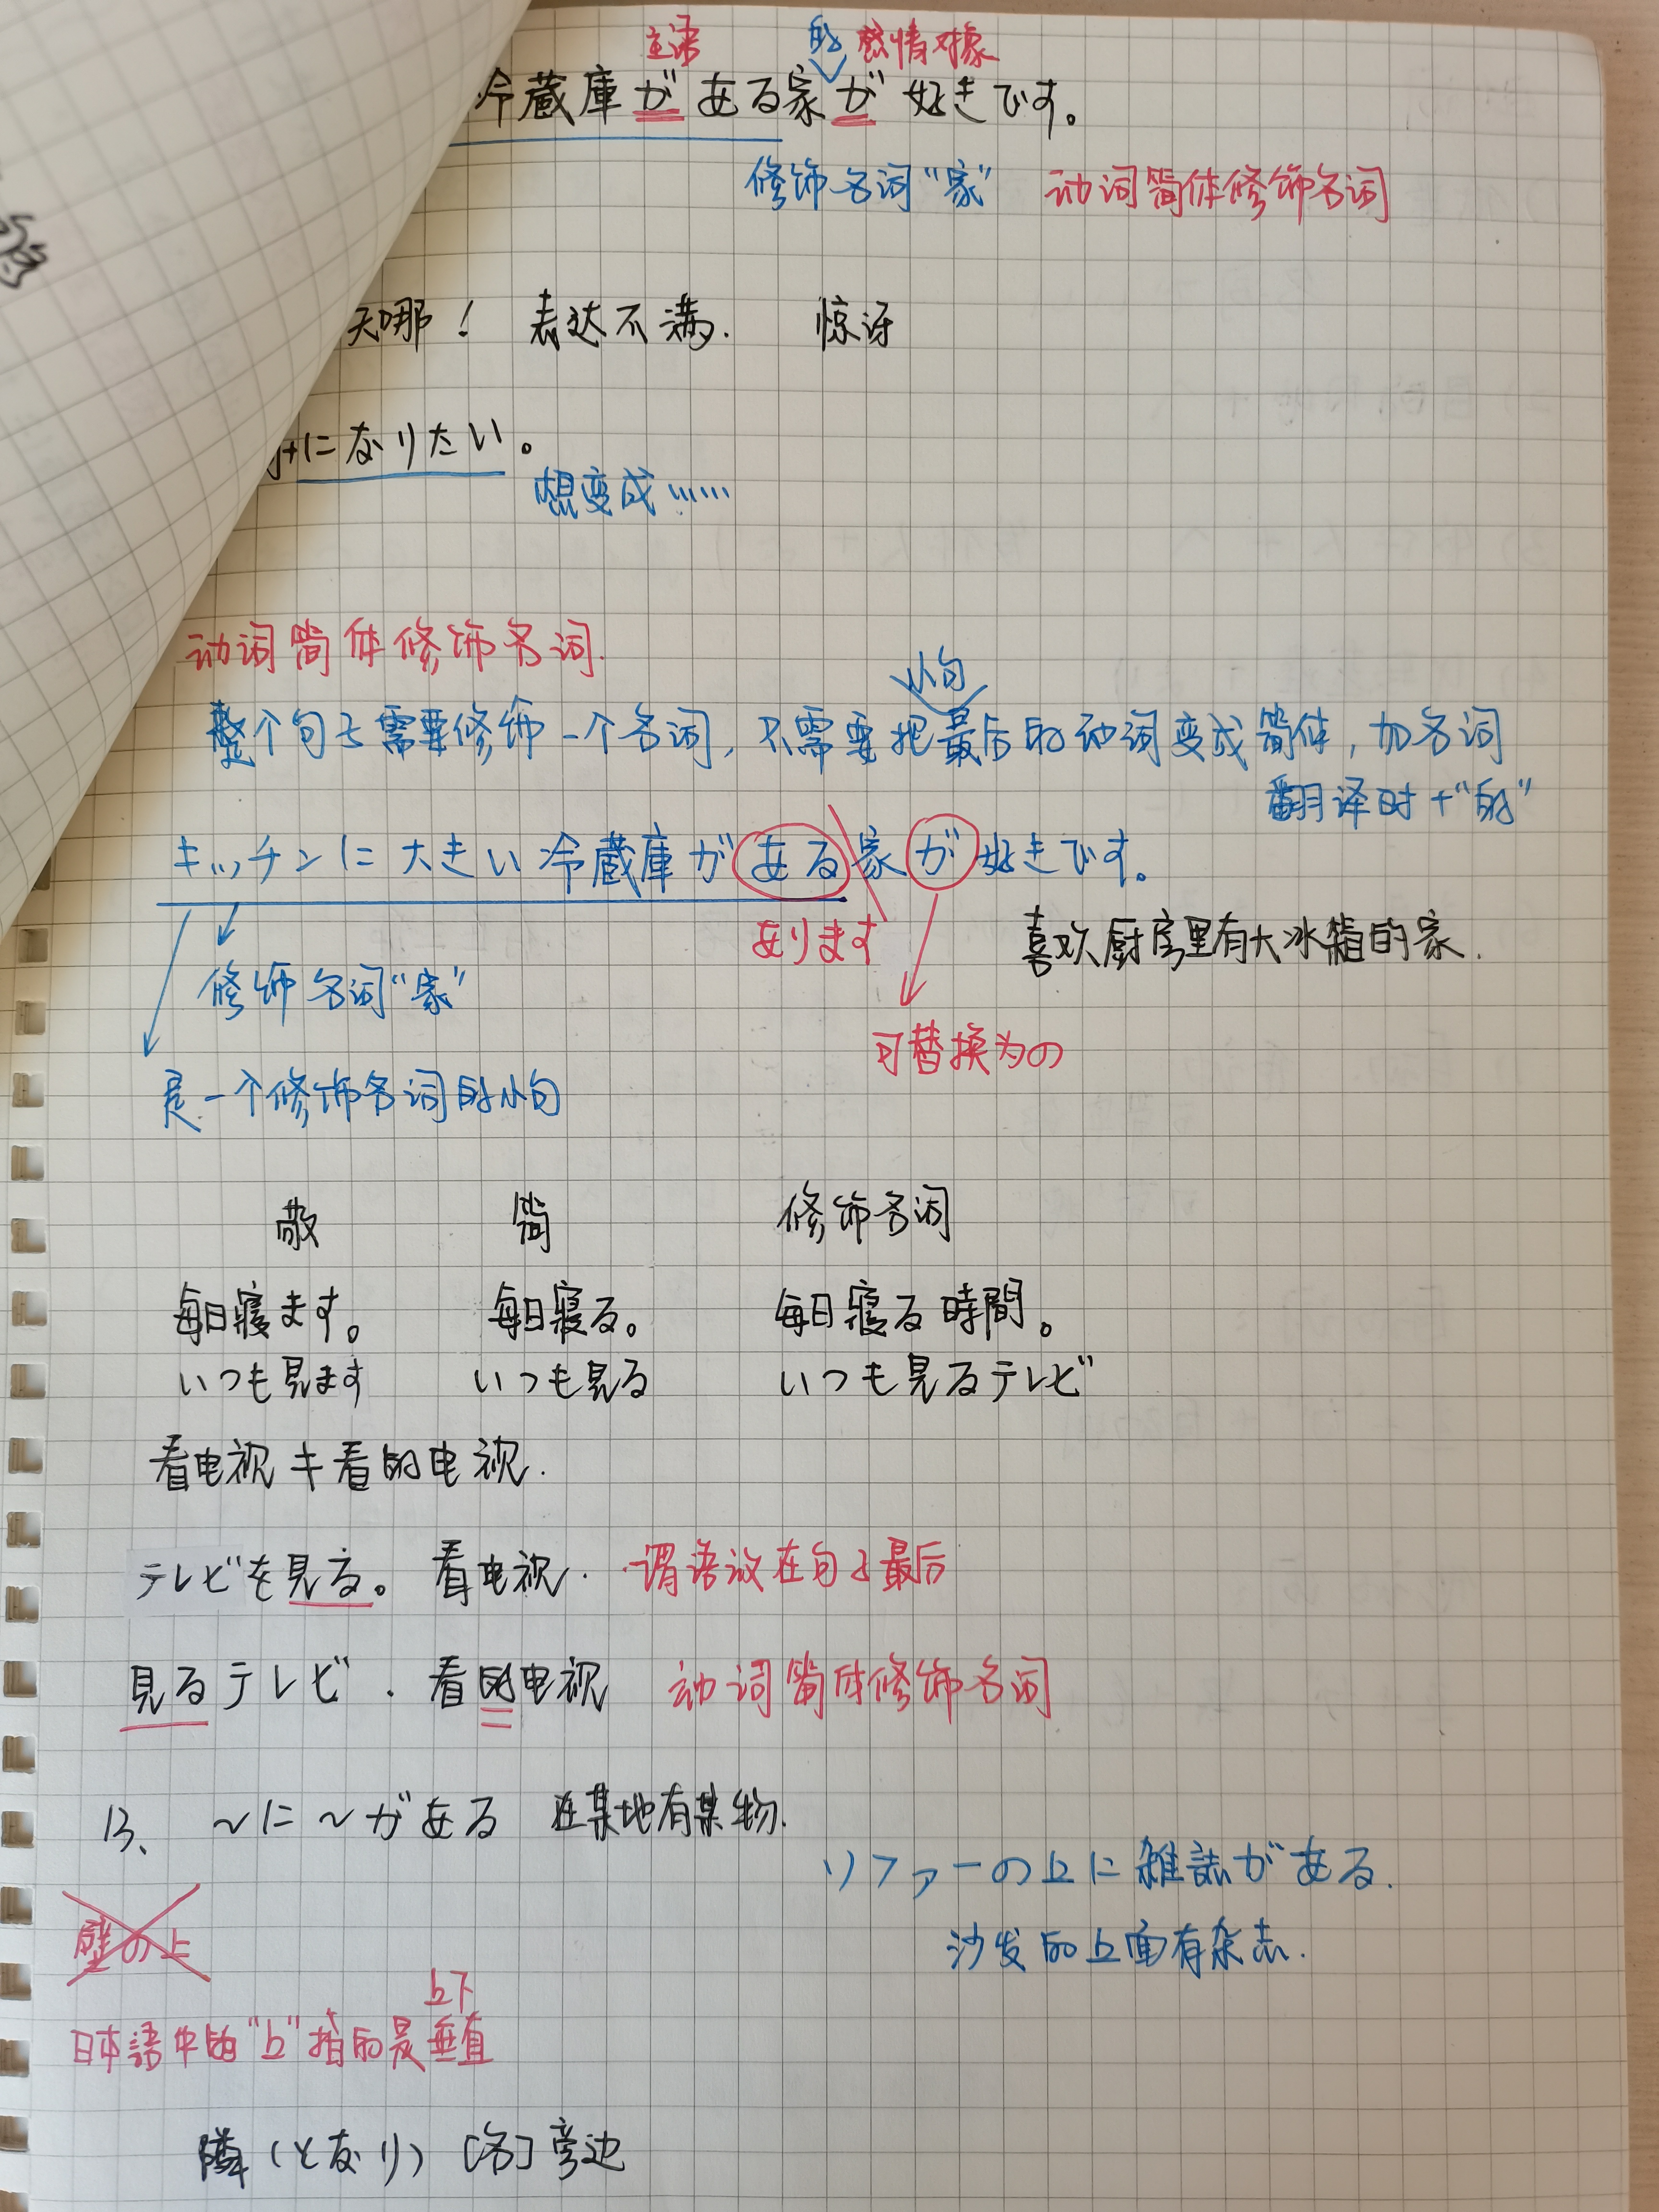 主语 的 感情对象
冷蔵庫が ある家が 好きです。
修饰名词“家” 动词简体修饰名词
天哪！ 表达不满. 惊讶
になりたい。
想变成……
动词简体修饰名词.
小句
整个句子需要修饰一个名词，只需要把最后的动词变成简体，加名词
翻译时+“的”
キッチンに大きい冷蔵庫がある家が好きです。
あります 喜欢厨房里有大冰箱的家.
修饰名词“家”
可替换为の
是一个修饰名词的小句
敬 简 修饰名词
每日寝ます。 每日寝る。 每日寝る時間。
いつも見ます いつも見る いつも見るテレビ
看电视≠看的电视.
テレビを見る。 看电视. 谓语放在句子最后
見るテレビ. 看的电视 动词简体修饰名词
13、 ～に～がある 在某地有某物.
ソファーの上に雑誌がある.
壁の上
沙发的上面有杂志.
上下
日本語中的“上”指的是垂直
隣（となり）［名］旁边